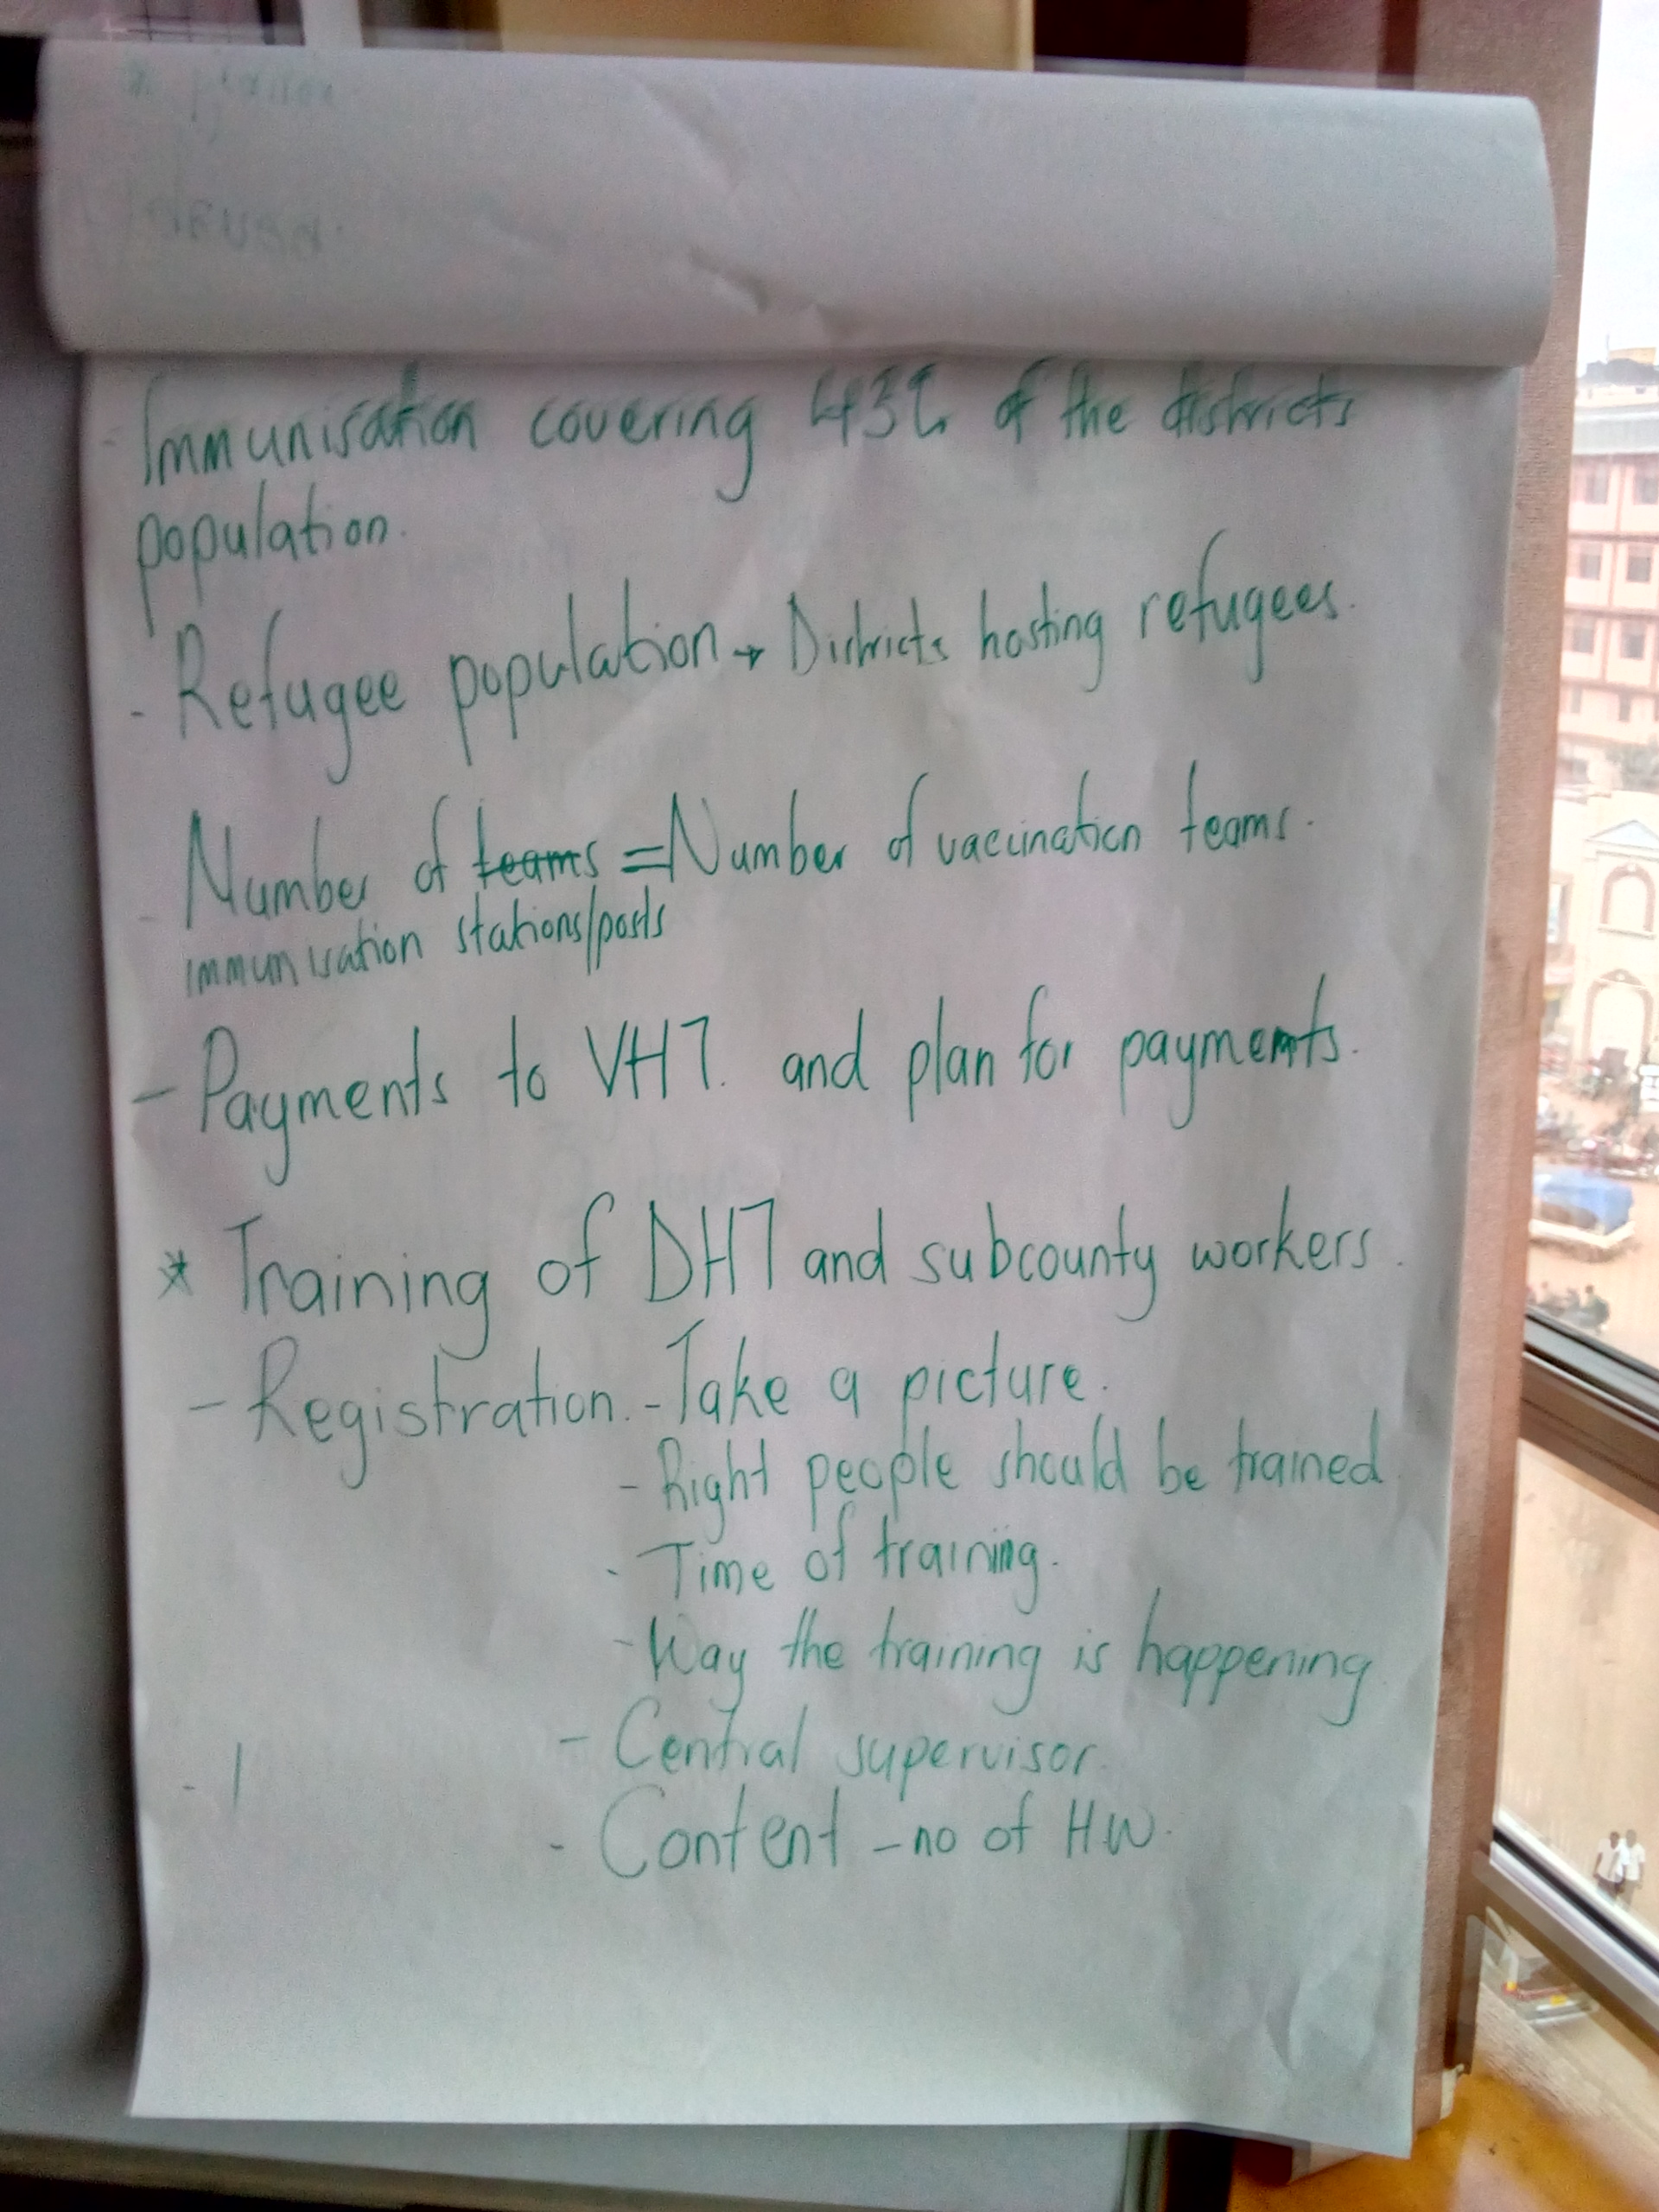 - Immunisation covering 43% of the districts
population.
- Refugee population → Districts hosting refugees.
- Number of teams = Number of vaccination teams.
immunisation stations/posts
- Payments to VHT. and plan for payments.
* Training of DHT and subcounty workers.
- Registration. - Take a picture.
- Right people should be trained.
- Time of training.
- Way the training is happening.
- Central supervisor.
- Content - no of HW.